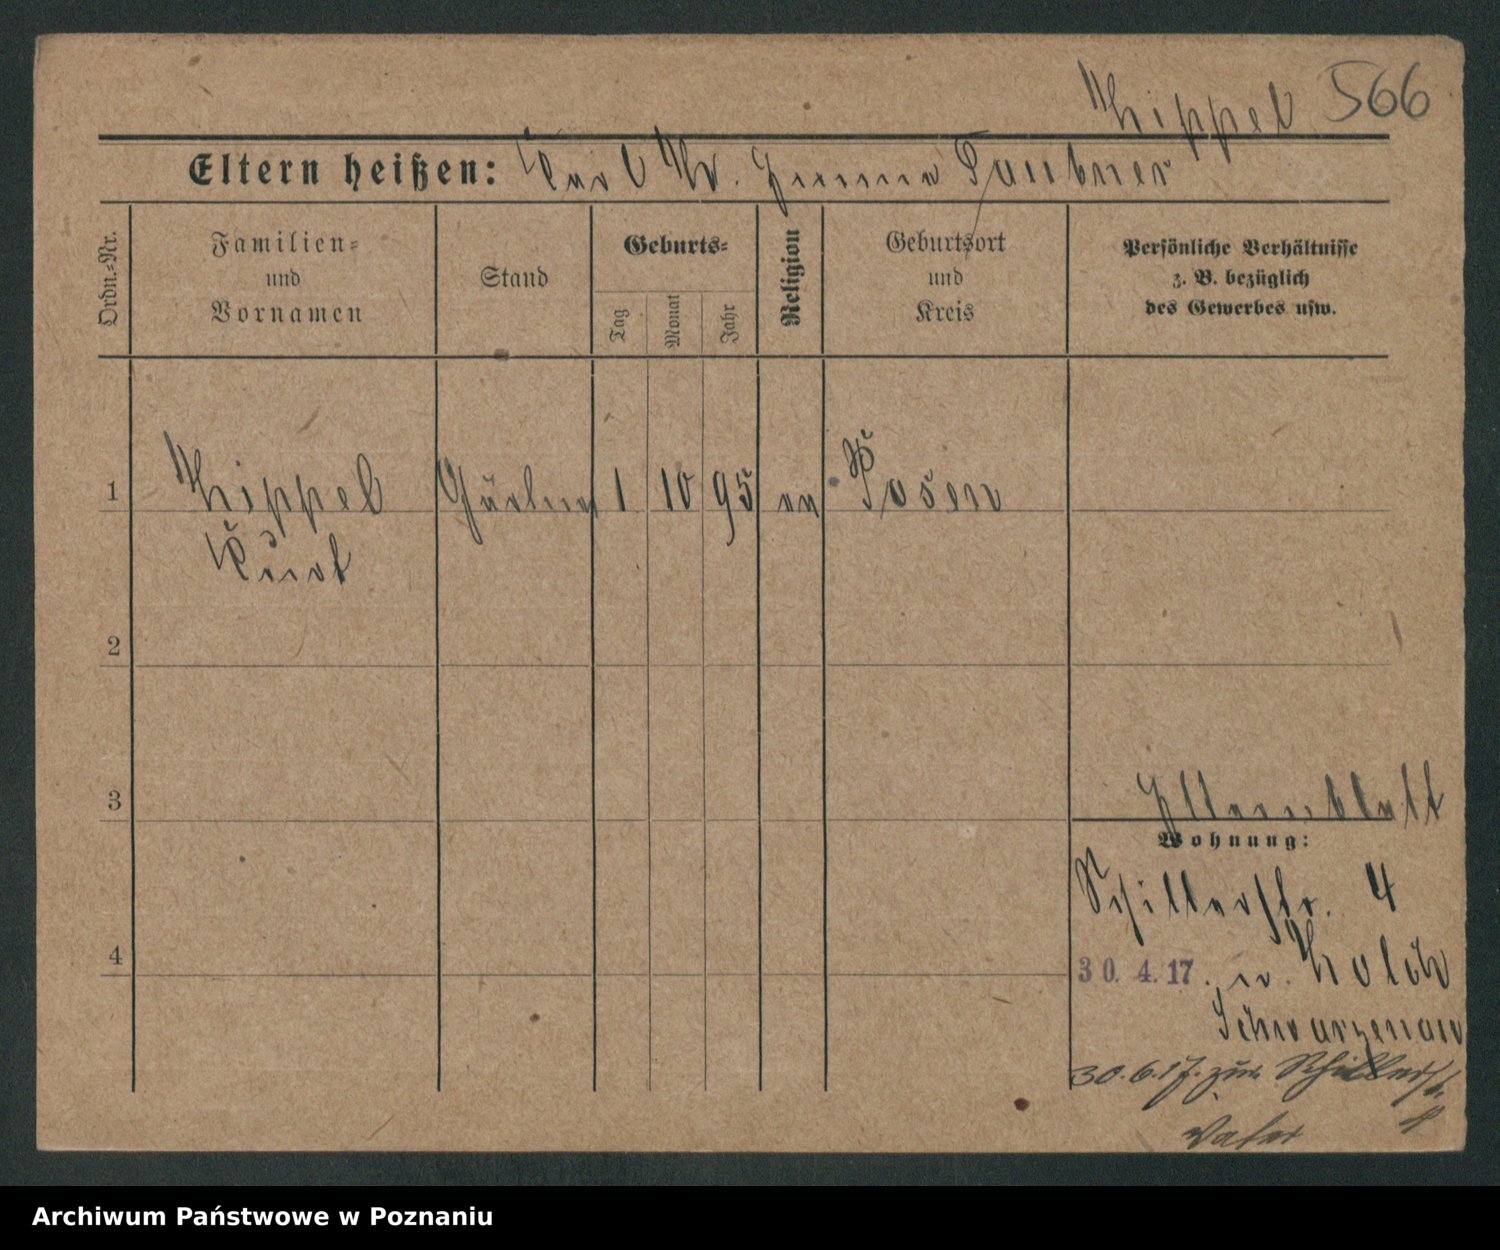 Hippel 566
Eltern heißen: Karl H. Taubner
Ordn.-Nr.
Familien-
und
Vornamen
Stand
Geburts-
Tag
Monat
Jahr
Religion
Geburtsort
und
Kreis
Persönliche Verhältnisse
z. B. bezüglich
des Gewerbes usw.
1 Hippel Gärtner 1 10 95 ev Posen
Kurt
2
3
Elternblatt
Wohnung:
Schillerstr. 4
4
30. 4. 17. n.
Schwarzenau
30.6.17. zur Schillerstr.
Vater
Archiwum Państwowe w Poznaniu